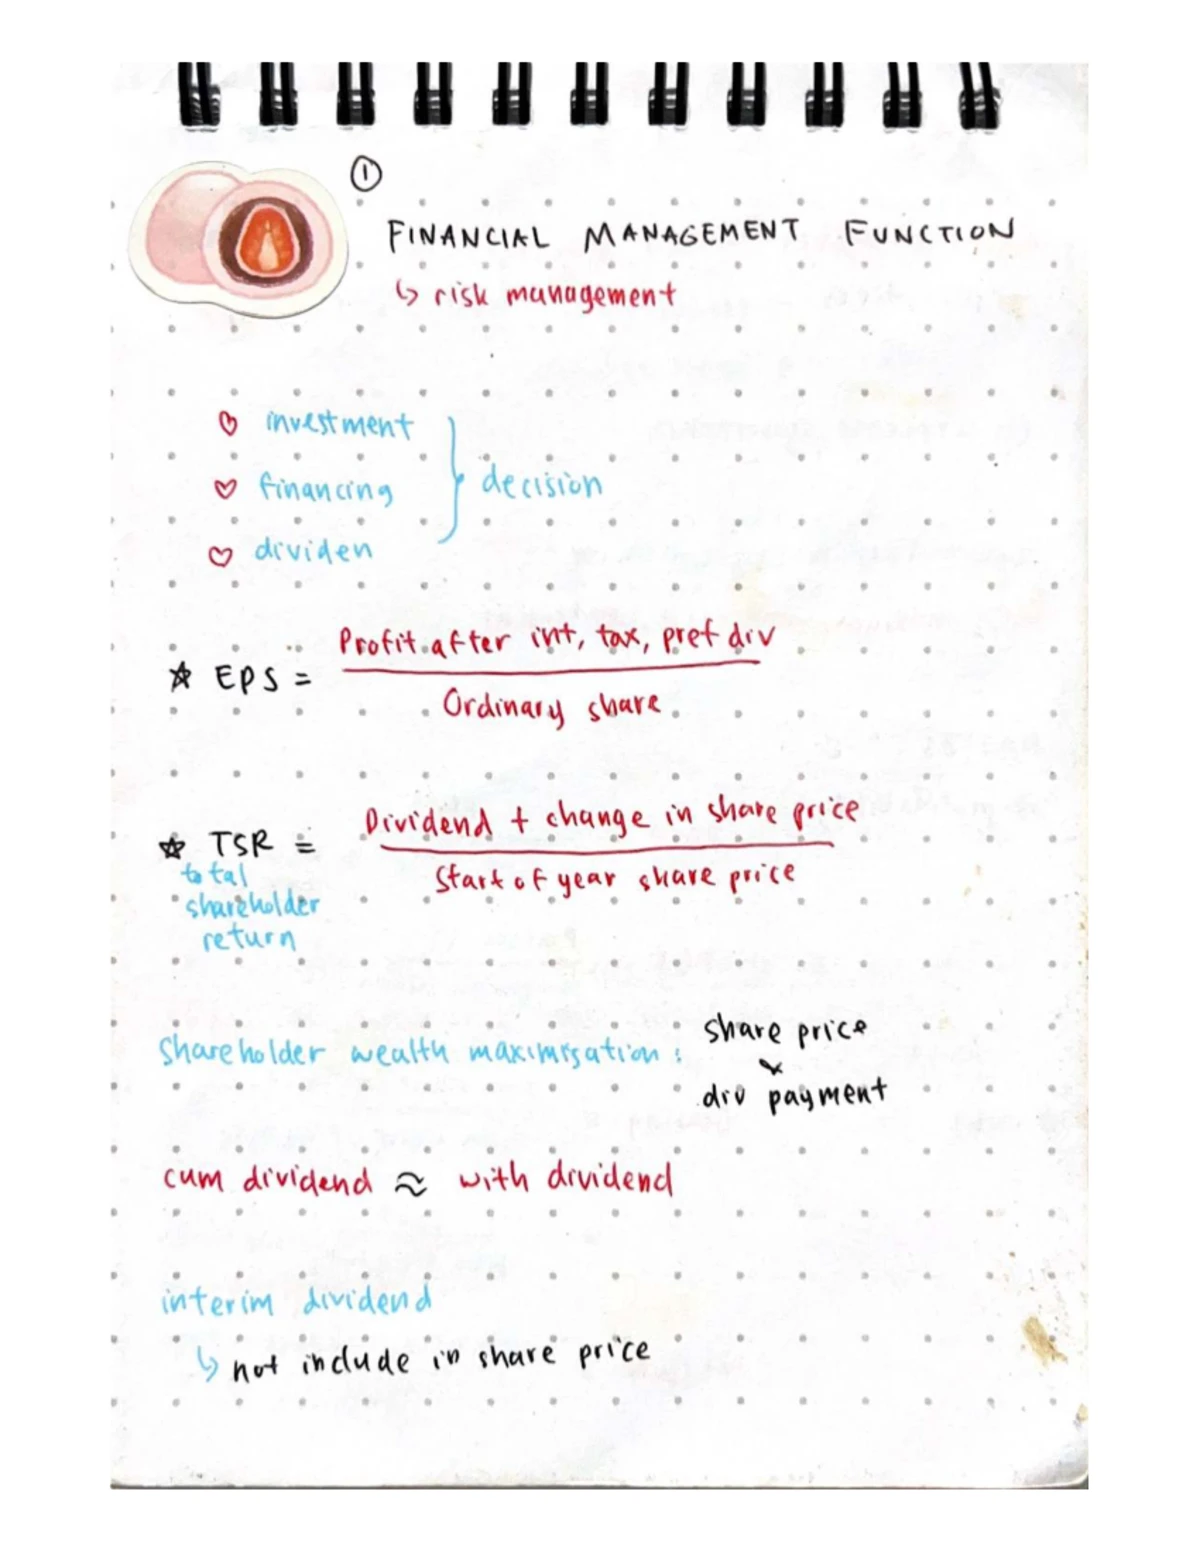 ①
FINANCIAL MANAGEMENT FUNCTION
↳ risk management
♡ investment
♡ financing } decision
♡ dividen
☆ EPS = Profit after int, tax, pref div
Ordinary share
☆ TSR = Dividend + change in share price
Start of year share price
total
shareholder
return
Shareholder wealth maximisation : share price
&
div payment
cum dividend ≈ with dividend
interim dividend
↳ not include in share price